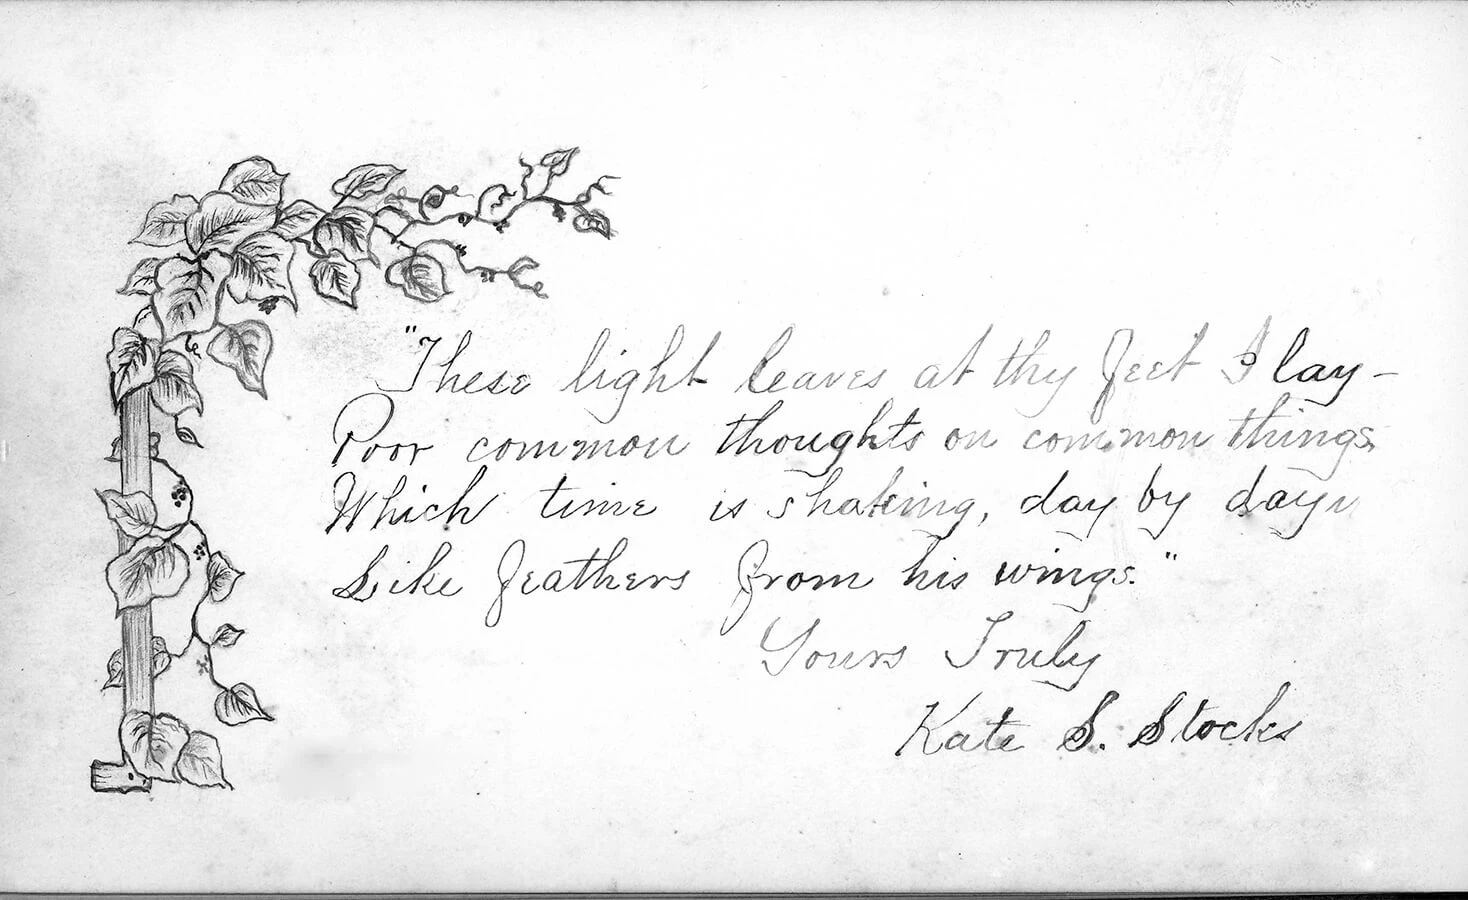 "These light leaves at thy feet I lay—
Poor common thoughts on common things,
Which time is shaking, day by day,
Like feathers from his wings."
Yours Truly
Kate S. Stocks